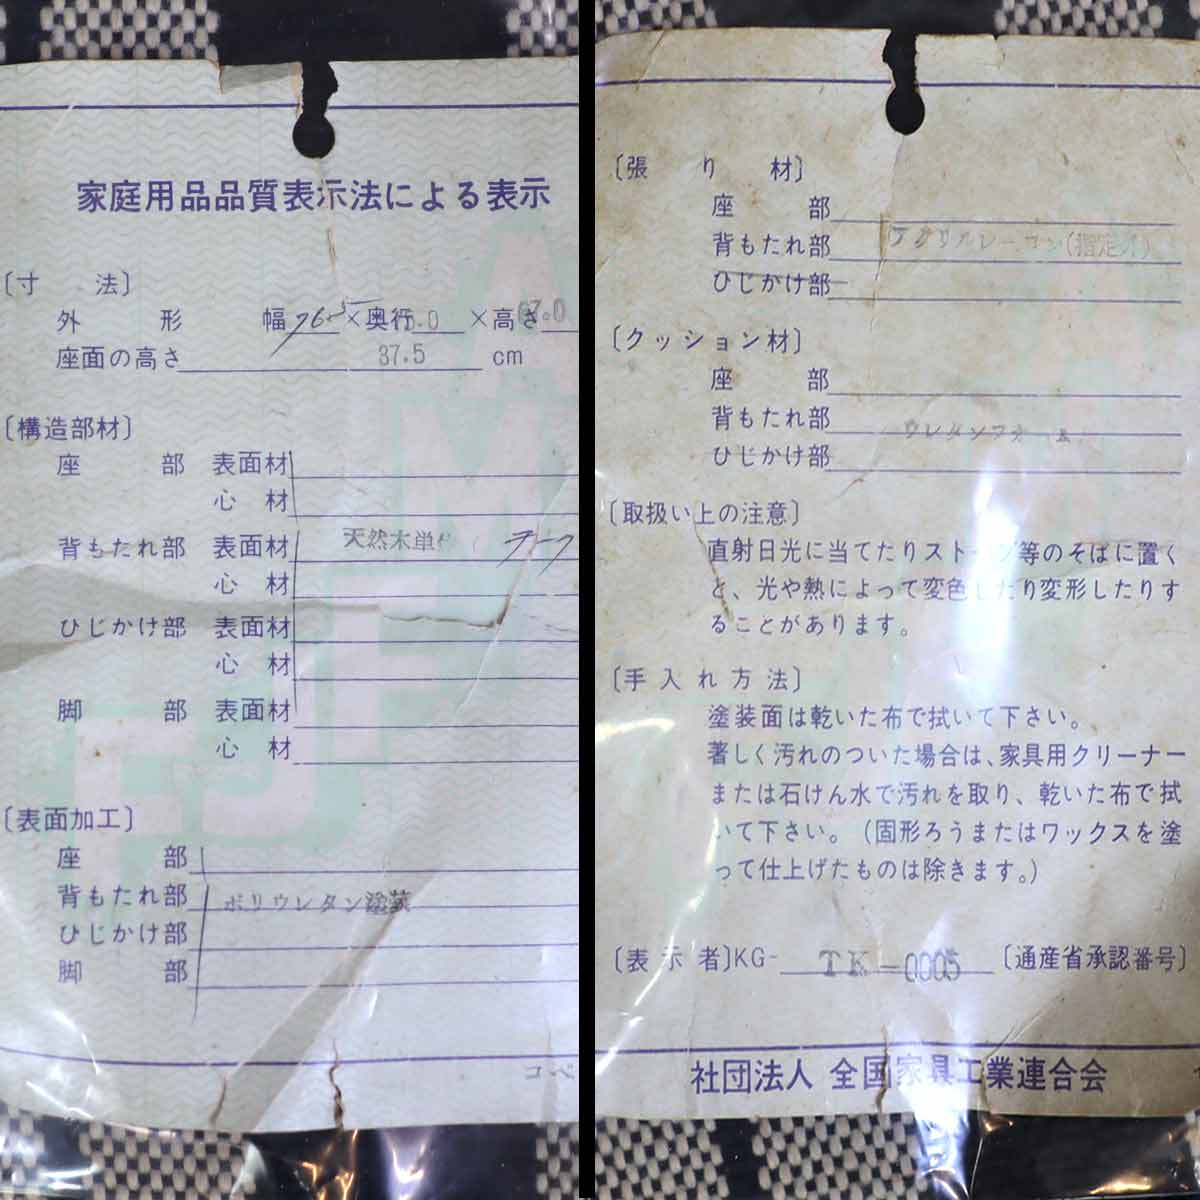 家庭用品品質表示法による表示
〔寸 法〕
外 形 幅76.5×奥行 .0 ×高さ67.0
座面の高さ 37.5 cm
〔構造部材〕
座 部 表面材
心 材
背もたれ部 表面材 天然木単 チーク
心 材
ひじかけ部 表面材
心 材
脚 部 表面材
心 材
〔表面加工〕
座 部
背もたれ部 ポリウレタン塗装
ひじかけ部
脚 部
〔張 り 材〕
座 部
背もたれ部 アクリルレーヨン(指定外)
ひじかけ部
〔クッション材〕
座 部
背もたれ部 ウレタンフォーム
ひじかけ部
〔取扱い上の注意〕
直射日光に当てたりストーブ等のそばに置く
と、光や熱によって変色したり変形したりす
ることがあります。
〔手入れ方法〕
塗装面は乾いた布で拭いて下さい。
著しく汚れのついた場合は、家具用クリーナー
または石けん水で汚れを取り、乾いた布で拭
いて下さい。(固形ろうまたはワックスを塗
って仕上げたものは除きます。)
〔表示者〕KG- TK-0005 〔通産省承認番号〕
社団法人 全国家具工業連合会